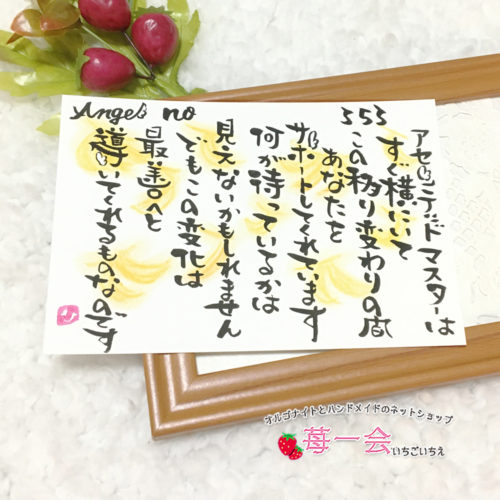 Angel's no
353
アセンデッドマスターは
すぐ横にいて
この移り変わりの間
あなたを
サポートしてくれています
何が待っているかは
見えないかもしれません
でもこの変化は
最善へと
導いてくれるものなのです
オルゴナイトとハンドメイドのネットショップ
苺一会
いちごいちえ